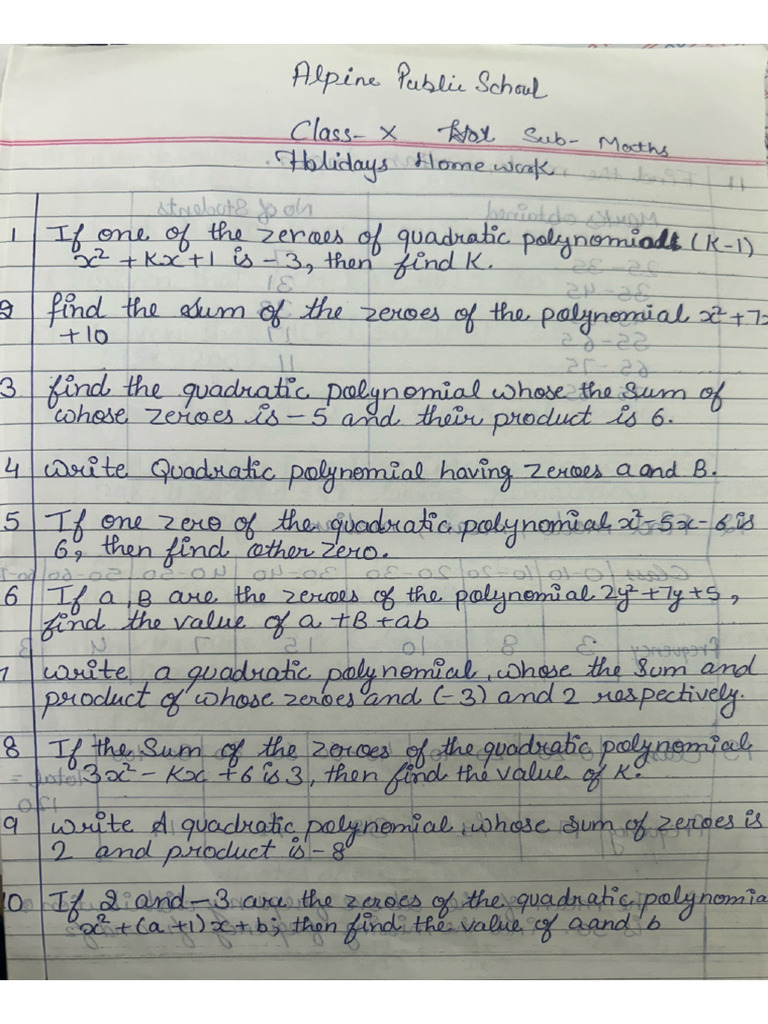 Alpine Public School
Class- X Sub- Maths
Holidays Home work.
1 If one of the zeroes of quadratic polynomial (K-1)
x² + Kx + 1 is - 3, then find K.
2 find the sum of the zeroes of the polynomial x² + 7x
+10
3 find the quadratic polynomial whose the sum of
whose zeroes is - 5 and their product is 6.
4 write Quadratic polynomial having zeroes a and B.
5 If one zero of the quadratic polynomial x² - 5x - 6 is
6, then find other zero.
6 If a, B are the zeroes of the polynomial 2y² + 7y + 5,
find the value of a + B + ab
7 write a quadratic polynomial, whose the sum and
product of whose zeroes and (-3) and 2 respectively.
8 If the sum of the zeroes of the quadratic polynomial
3x² - Kx + 6 is 3, then find the value of K.
9 write A quadratic polynomial, whose sum of zeroes is
2 and product is - 8
0 If 2 and - 3 are the zeroes of the quadratic polynomia
x² + (a + 1) x + b; then find the value of a and b